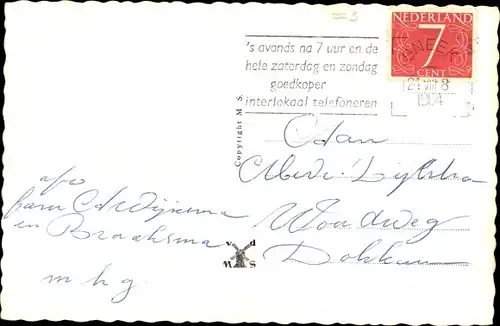 's avonds na 7 uur en de
hele zaterdag en zondag
goedkoper
interlokaal telefoneren
NEDERLAND
7
CENT
SNEEK
21 VIII 8
1964
Copyright M S.
Aan
Mevr. Dijkstra
Woudweg
Dokkum
afz
fam
en Braaksma
m h g
v d
M S